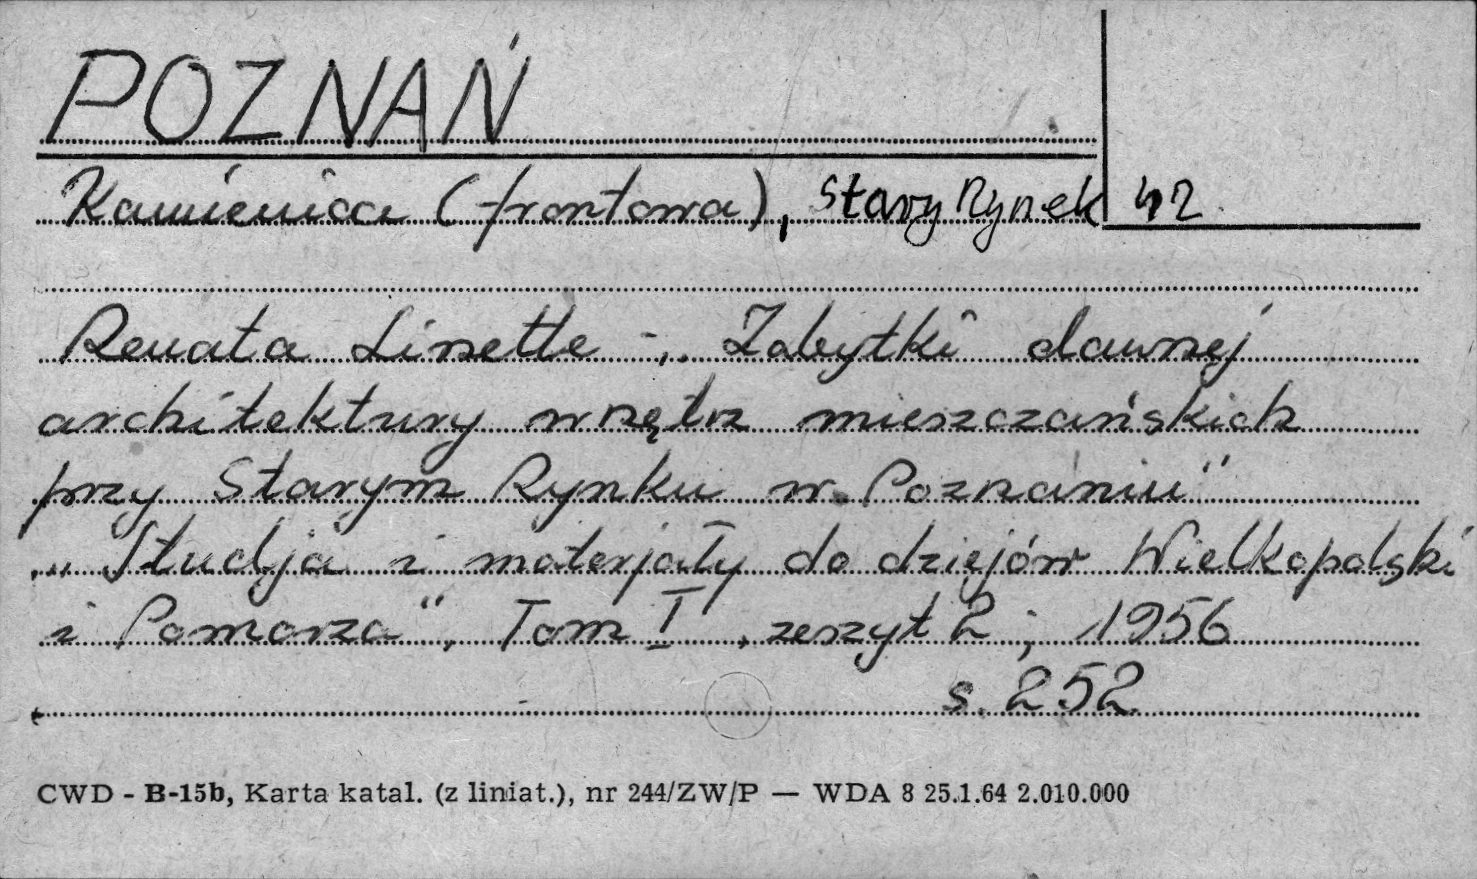 POZNAŃ
Kamienica (frontowa), Stary Rynek 42
Renata Linette -,, Zabytki dawnej
architektury wnętrz mieszczańskich
przy Starym Rynku w Poznaniu"
„Studja i materjały do dziejów Wielkopolski
i Pomorza", Tom I, zeszyt 2; 1956
s. 252
CWD - B-15b, Karta katal. (z liniat.), nr 244/ZW/P — WDA 8 25.1.64 2.010.000